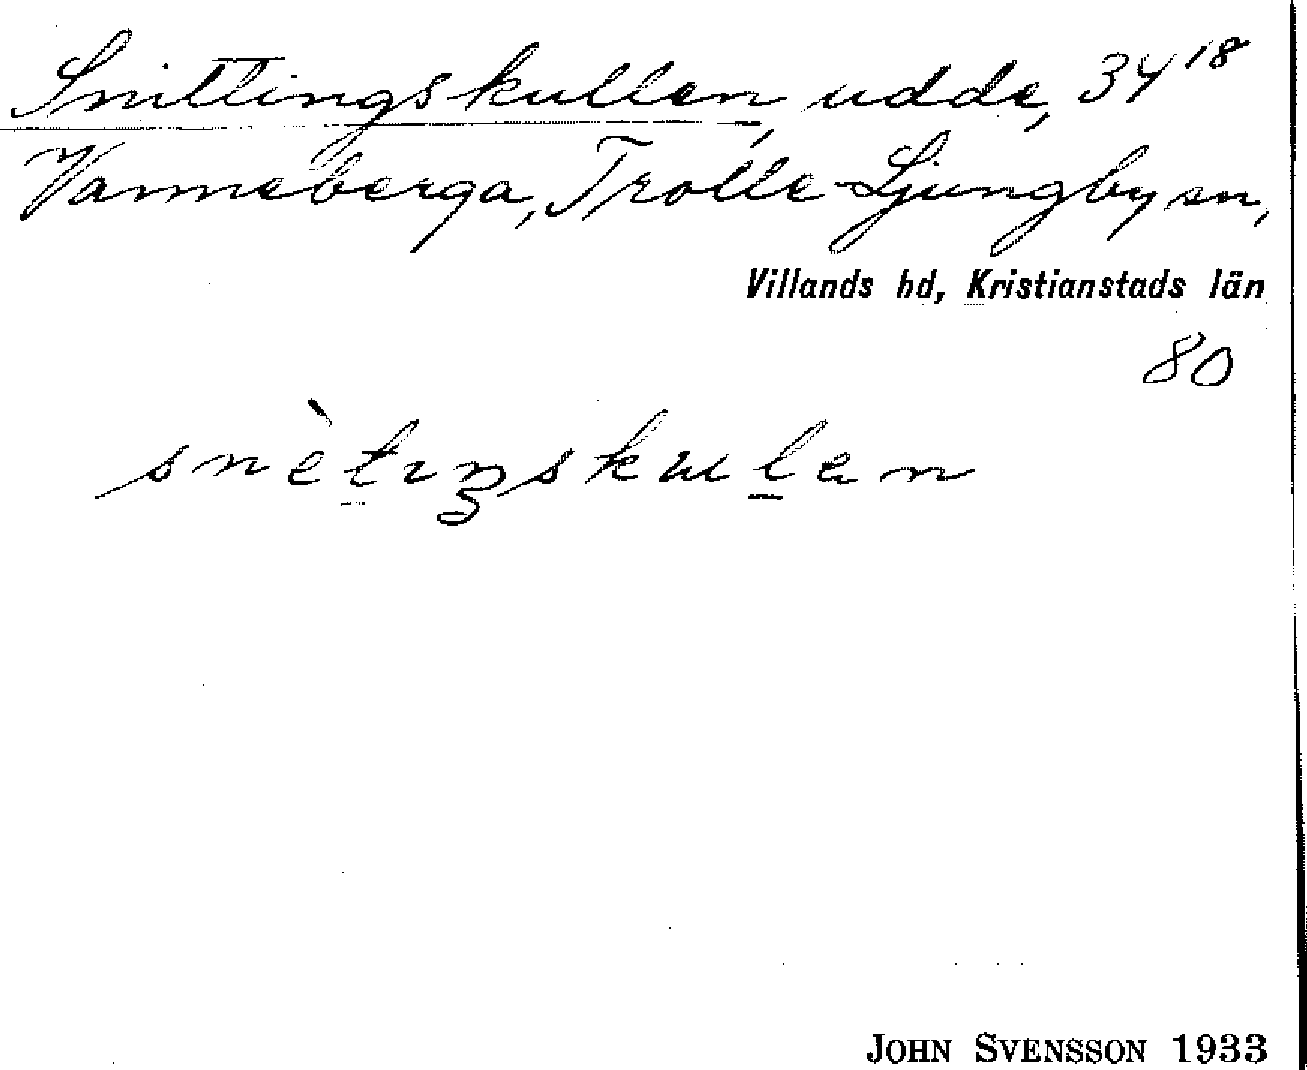 Snittingskullen, udde, 34¹⁸
Vanneberga, Trolle-Ljungby sn,
Villands hd, Kristianstads län
80
snètıŋskulen
JOHN SVENSSON 1933